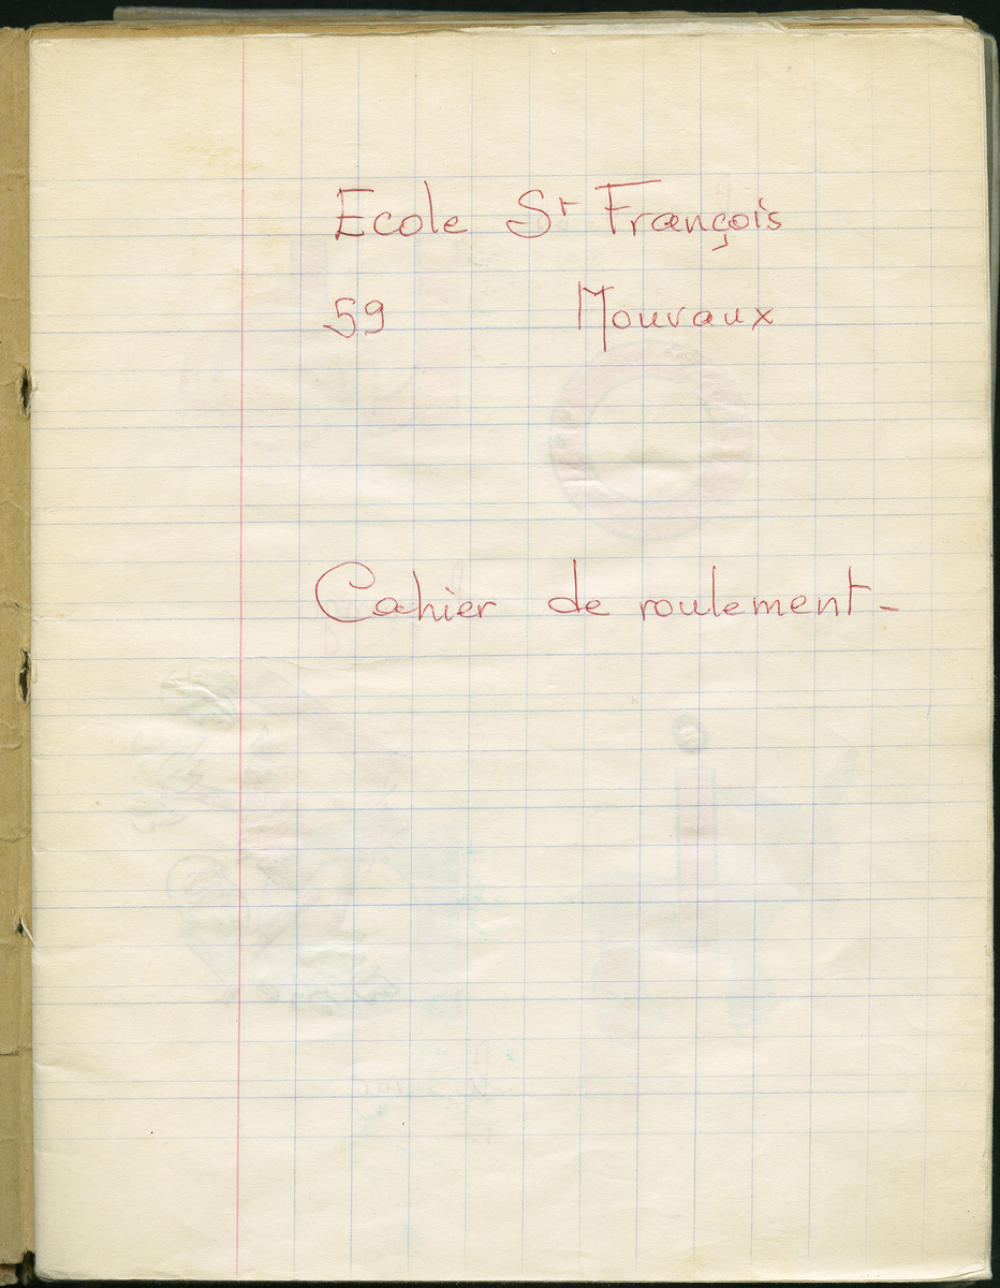 Ecole St François
59 Mouvaux
Cahier de roulement -